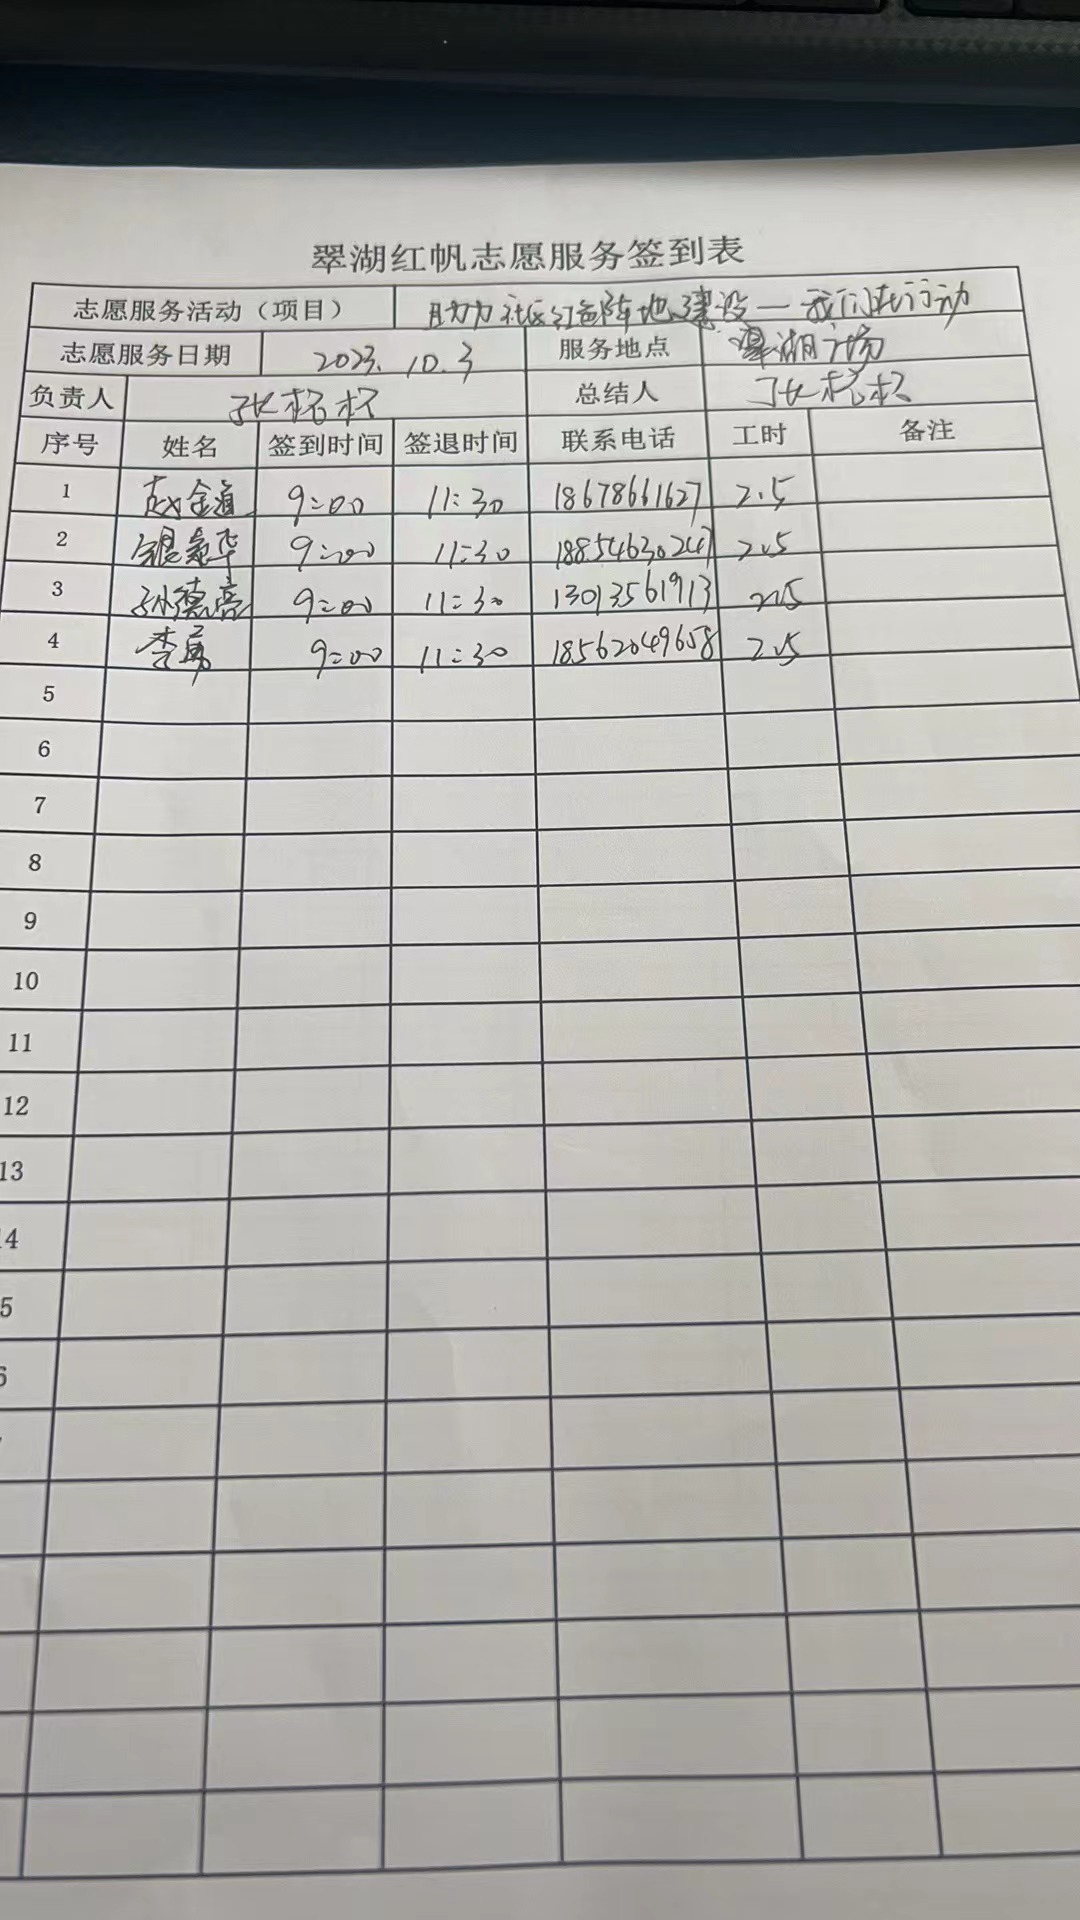 翠湖红帆志愿服务签到表
志愿服务活动（项目） 助力社区红色阵地建设—我们在行动
志愿服务日期 2023.10.3 服务地点 翠湖广场
负责人 张 总结人 张
序号 姓名 签到时间 签退时间 联系电话 工时 备注
1 赵金道 9:00 11:30 18678661627 2.5
2 9:00 11:30 18854630247 2.5
3 孙德亮 9:00 11:30 13013561913 2.5
4 李勇 9:00 11:30 18562049658 2.5
5
6
7
8
9
10
11
12
13
4
5
6